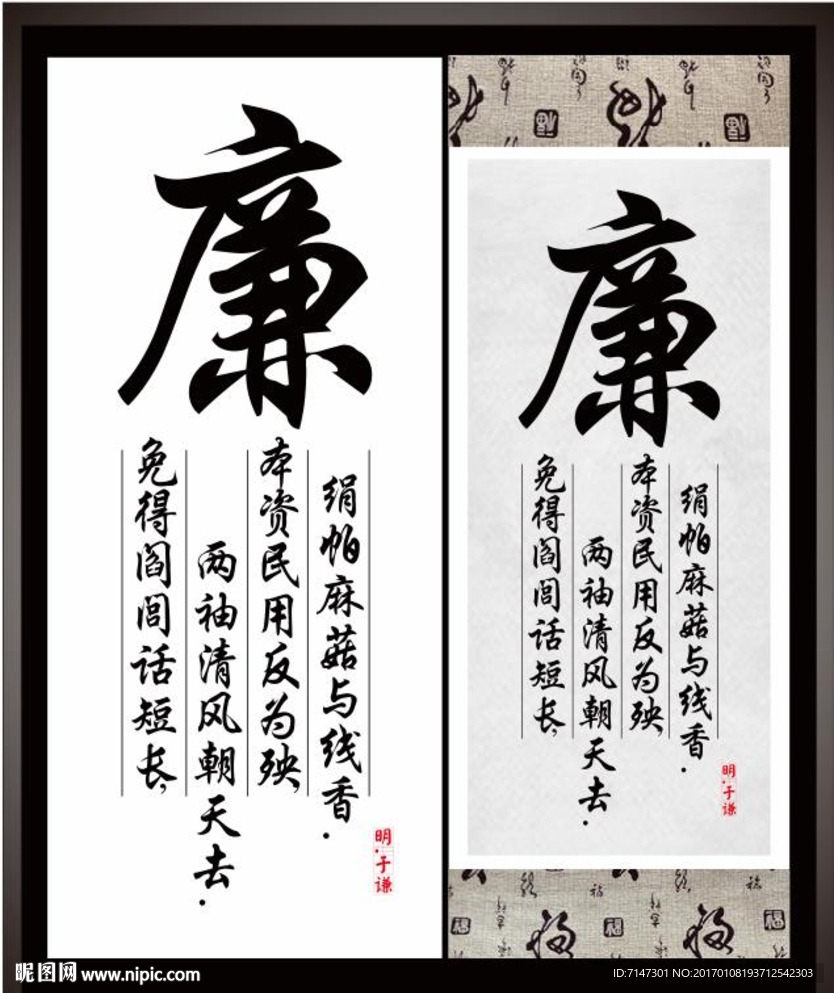 廉
绢帕麻菇与线香.
本资民用反为殃,
两袖清风朝天去.
免得阎闾话短长,
明·于谦
廉
绢帕麻菇与线香.
本资民用反为殃,
两袖清风朝天去.
免得阎闾话短长,
明·于谦
福
福
昵图网 www.nipic.com
ID:7147301 NO:20170108193712542303